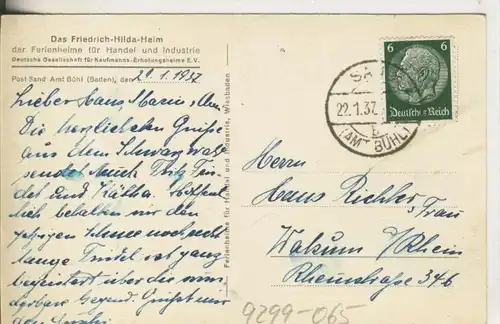 Das Friedrich-Hilda-Heim
der Ferienheime für Handel und Industrie
Deutsche Gesellschaft für Kaufmanns-Erholungsheime E.V.
Post Sand Amt Bühl (Baden), den 21.1.1937
Lieber Hans,
Die herzlichsten Grüße
aus dem Schwarzwald
sendet Euch Fritz
und Käthe.
lich behalten wir den
Schnee noch recht
lange. ist ganz
begeistert über die wun
derbare Gegend. Grüßt mir
Ferienheime für Handel und Industrie, Wiesbaden
6 6
Deutsches Reich
22.1.37
(AMT BÜHL)
Herrn
Hans Richter u. Frau
Walsum / Rhein
Rheinstraße 346
9299-065